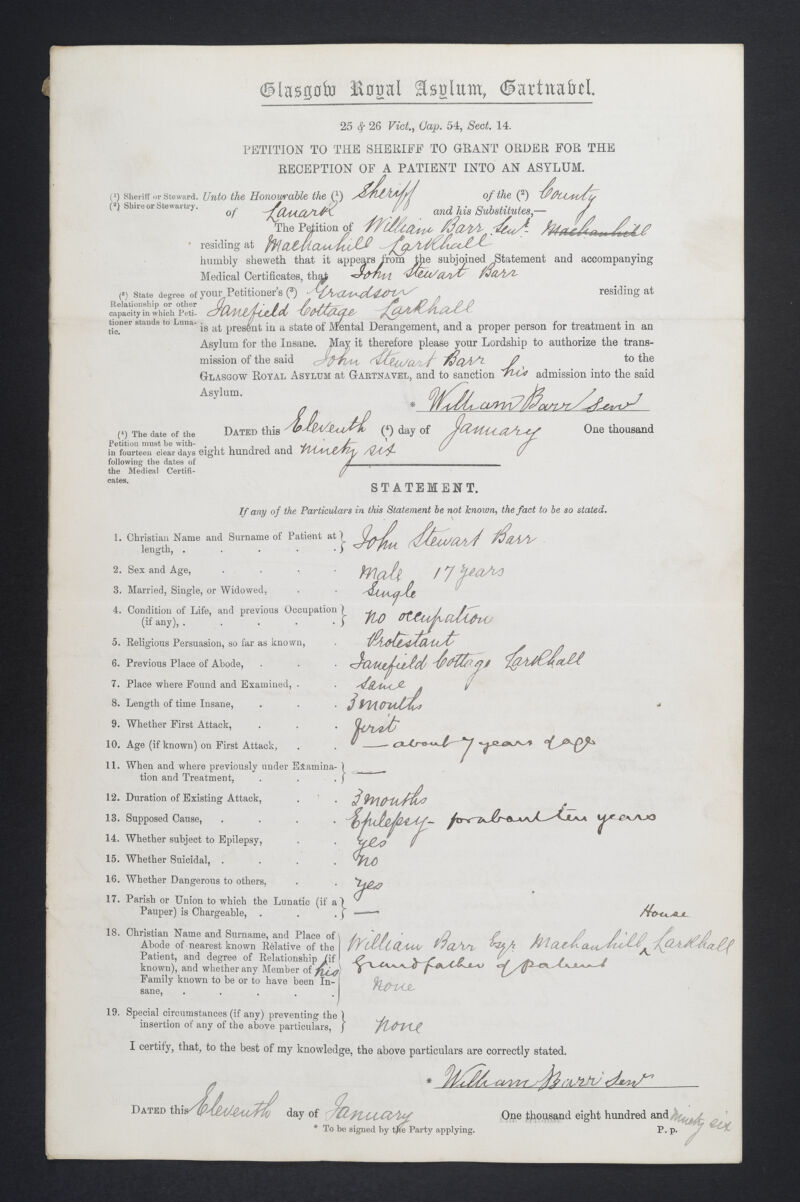 Glasgow Royal Asylum, Gartnavel.
25 & 26 Vict., Cap. 54, Sect. 14.
PETITION TO THE SHERIFF TO GRANT ORDER FOR THE
RECEPTION OF A PATIENT INTO AN ASYLUM.
(1) Sheriff or Steward.
(2) Shire or Stewartry.
Unto the Honourable the (1) Sheriff of the (2) County
of Lanark and his Substitutes,—
The Petition of William Barr Senr. Machanhill
residing at Machanhill Larkhall
humbly sheweth that it appears from the subjoined Statement and accompanying
Medical Certificates, that John Stewart Barr
(3) State degree of
Relationship or other
capacity in which Peti-
tioner stands to Luna-
tic.
your Petitioner's (3) Grandson residing at
Janefield Cottage Larkhall
is at present in a state of Mental Derangement, and a proper person for treatment in an
Asylum for the Insane. May it therefore please your Lordship to authorize the trans-
mission of the said John Stewart Barr to the
GLASGOW ROYAL ASYLUM at GARTNAVEL, and to sanction his admission into the said
Asylum.
* William Barr Senr
(4) The date of the
Petition must be with-
in fourteen clear days
following the dates of
the Medical Certifi-
cates.
DATED this Eleventh (4) day of January One thousand
eight hundred and ninety six
STATEMENT.
If any of the Particulars in this Statement be not known, the fact to be so stated.
1. Christian Name and Surname of Patient at
length, . . . . . John Stewart Barr
2. Sex and Age, . . . . Male 17 years
3. Married, Single, or Widowed, . . Single
4. Condition of Life, and previous Occupation
(if any), . . . . . no occupation
5. Religious Persuasion, so far as known, . Protestant
6. Previous Place of Abode, . . . Janefield Cottage Larkhall
7. Place where Found and Examined, . . same
8. Length of time Insane, . . . 3 months
9. Whether First Attack, . . . first
10. Age (if known) on First Attack, . . — about 7 years of age
11. When and where previously under Examina-
tion and Treatment, . . . —
12. Duration of Existing Attack, . . 3 months
13. Supposed Cause, . . . . Epilepsy - for about ten years
14. Whether subject to Epilepsy, . . yes
15. Whether Suicidal, . . . . no
16. Whether Dangerous to others, . . yes
17. Parish or Union to which the Lunatic (if a
Pauper) is Chargeable, . . . —
House
18. Christian Name and Surname, and Place of
Abode of nearest known Relative of the
Patient, and degree of Relationship (if
known), and whether any Member of his
Family known to be or to have been In-
sane, . . . . .
William Barr Esqr Machanhill ^ Larkhall
Grandfather of patient
None
19. Special circumstances (if any) preventing the
insertion of any of the above particulars, None
I certify, that, to the best of my knowledge, the above particulars are correctly stated.
* William Barr Senr
DATED this Eleventh day of January One thousand eight hundred and ninety six
* To be signed by the Party applying. P. p.